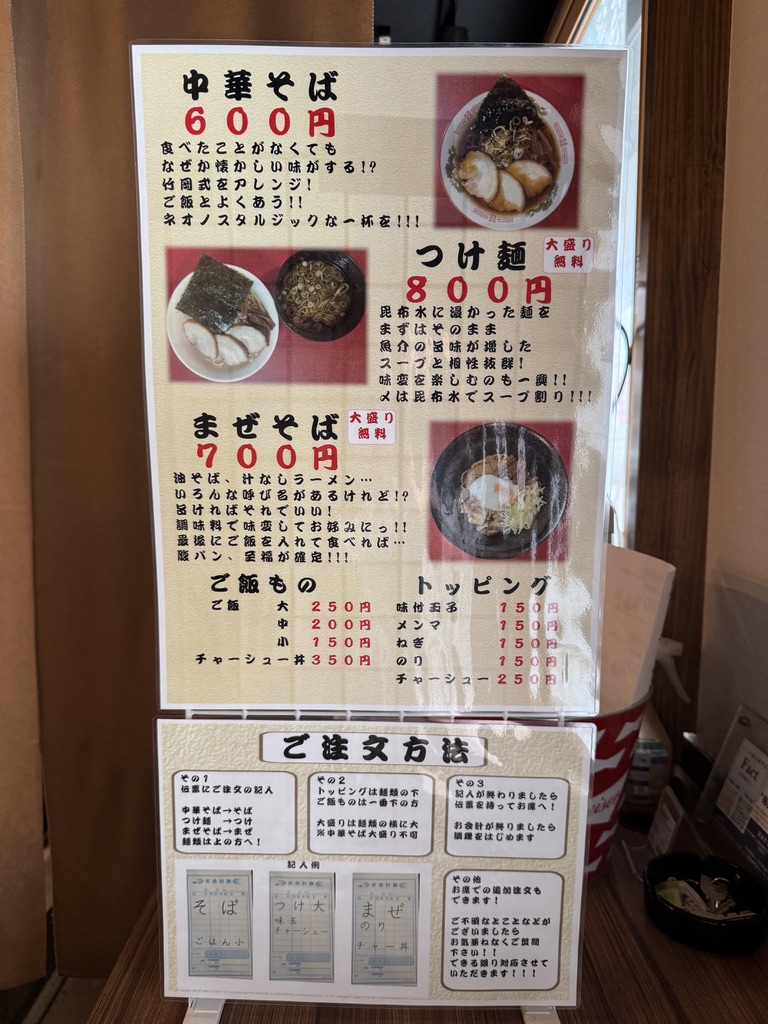 中華そば
600円
食べたことがなくても
なぜか懐かしい味がする!?
竹岡式をアレンジ!
ご飯とよくあう!!
ネオノスタルジックな一杯を!!!
つけ麺
大盛り
無料
800円
昆布水に浸かった麺を
まずはそのまま
魚介の旨味が増した
スープと相性抜群!
味変を楽しむのも一興!!
〆は昆布水でスープ割り!!!
まぜそば
大盛り
無料
700円
油そば、汁なしラーメン…
いろんな呼び名があるけれど!?
旨ければそれでいい!
調味料で味変してお好みにっ!!
最後にご飯を入れて食べれば…
腹パン、至福が確定!!!
ご飯もの
ご飯 大 250円
中 200円
小 150円
チャーシュー丼 350円
トッピング
味付玉子 150円
メンマ 150円
ねぎ 150円
のり 150円
チャーシュー 250円
ご注文方法
その1
伝票にご注文の記入
中華そば→そば
つけ麺 →つけ
まぜそば→まぜ
麺類は上の方へ!
その2
トッピングは麺類の下
ご飯ものは一番下の方
大盛りは麺類の横に大
※中華そば大盛り不可
その3
記入が終わりましたら
伝票を持ってお席へ!
お会計が終りましたら
調理をはじめます
記入例
そば
ごはん小
つけ大
味玉
チャーシュー
まぜ
のり
チャー丼
その他
お席での追加注文も
できます!
ご不明なとことなどが
ございましたら
お気兼ねなくご質問
下さい!!
できる限り対応させて
いただきます!!!
Fact